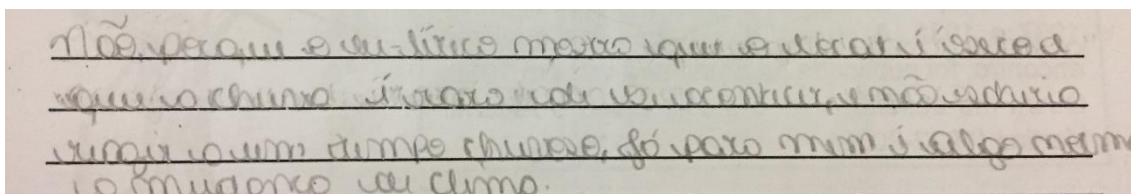 Não, porque o eu-lírico mostra que o literari é isso e a
que a chuva é raro de se acontecer, e não saberia
reagir a um tempo chuvoso. Já para mim é algo norm
a mudança de clima.